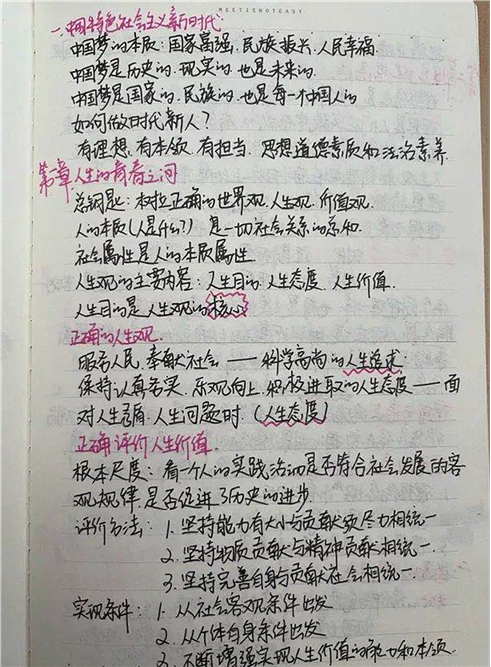 MEETISNOTEASY
一.中国特色社会主义新时代
中国梦的本质:国家富强.民族振兴.人民幸福.
中国梦是历史的.现实的.也是未来的.
中国梦是国家的.民族的.也是每一个中国人的
如何做时代新人?
有理想.有本领.有担当.思想道德素质和法治素养.
第一章.人生的青春之问
总钥匙:树立正确的世界观.人生观.价值观.
人的本质(人是什么?) 是一切社会关系的总和.
社会属性是人的本质属性
人生观的主要内容:人生目的.人生态度.人生价值.
人生目的是人生观的核心
正确的人生观.
服务人民.奉献社会——科学高尚的人生追求
保持认真务实.乐观向上.积极进取的人生态度——面
对人生矛盾.人生问题时.(人生态度)
正确评价人生价值.
根本尺度:看一个人的实践活动是否符合社会发展的客
观规律.是否促进了历史的进步
评价方法:1.坚持能力有大小与贡献须尽力相统一
2.坚持物质贡献与精神贡献相统一.
3.坚持完善自身与贡献社会相统一.
实现条件:1.从社会客观条件出发
2.从个体自身条件出发
3.不断增强实现人生价值的能力和本领.